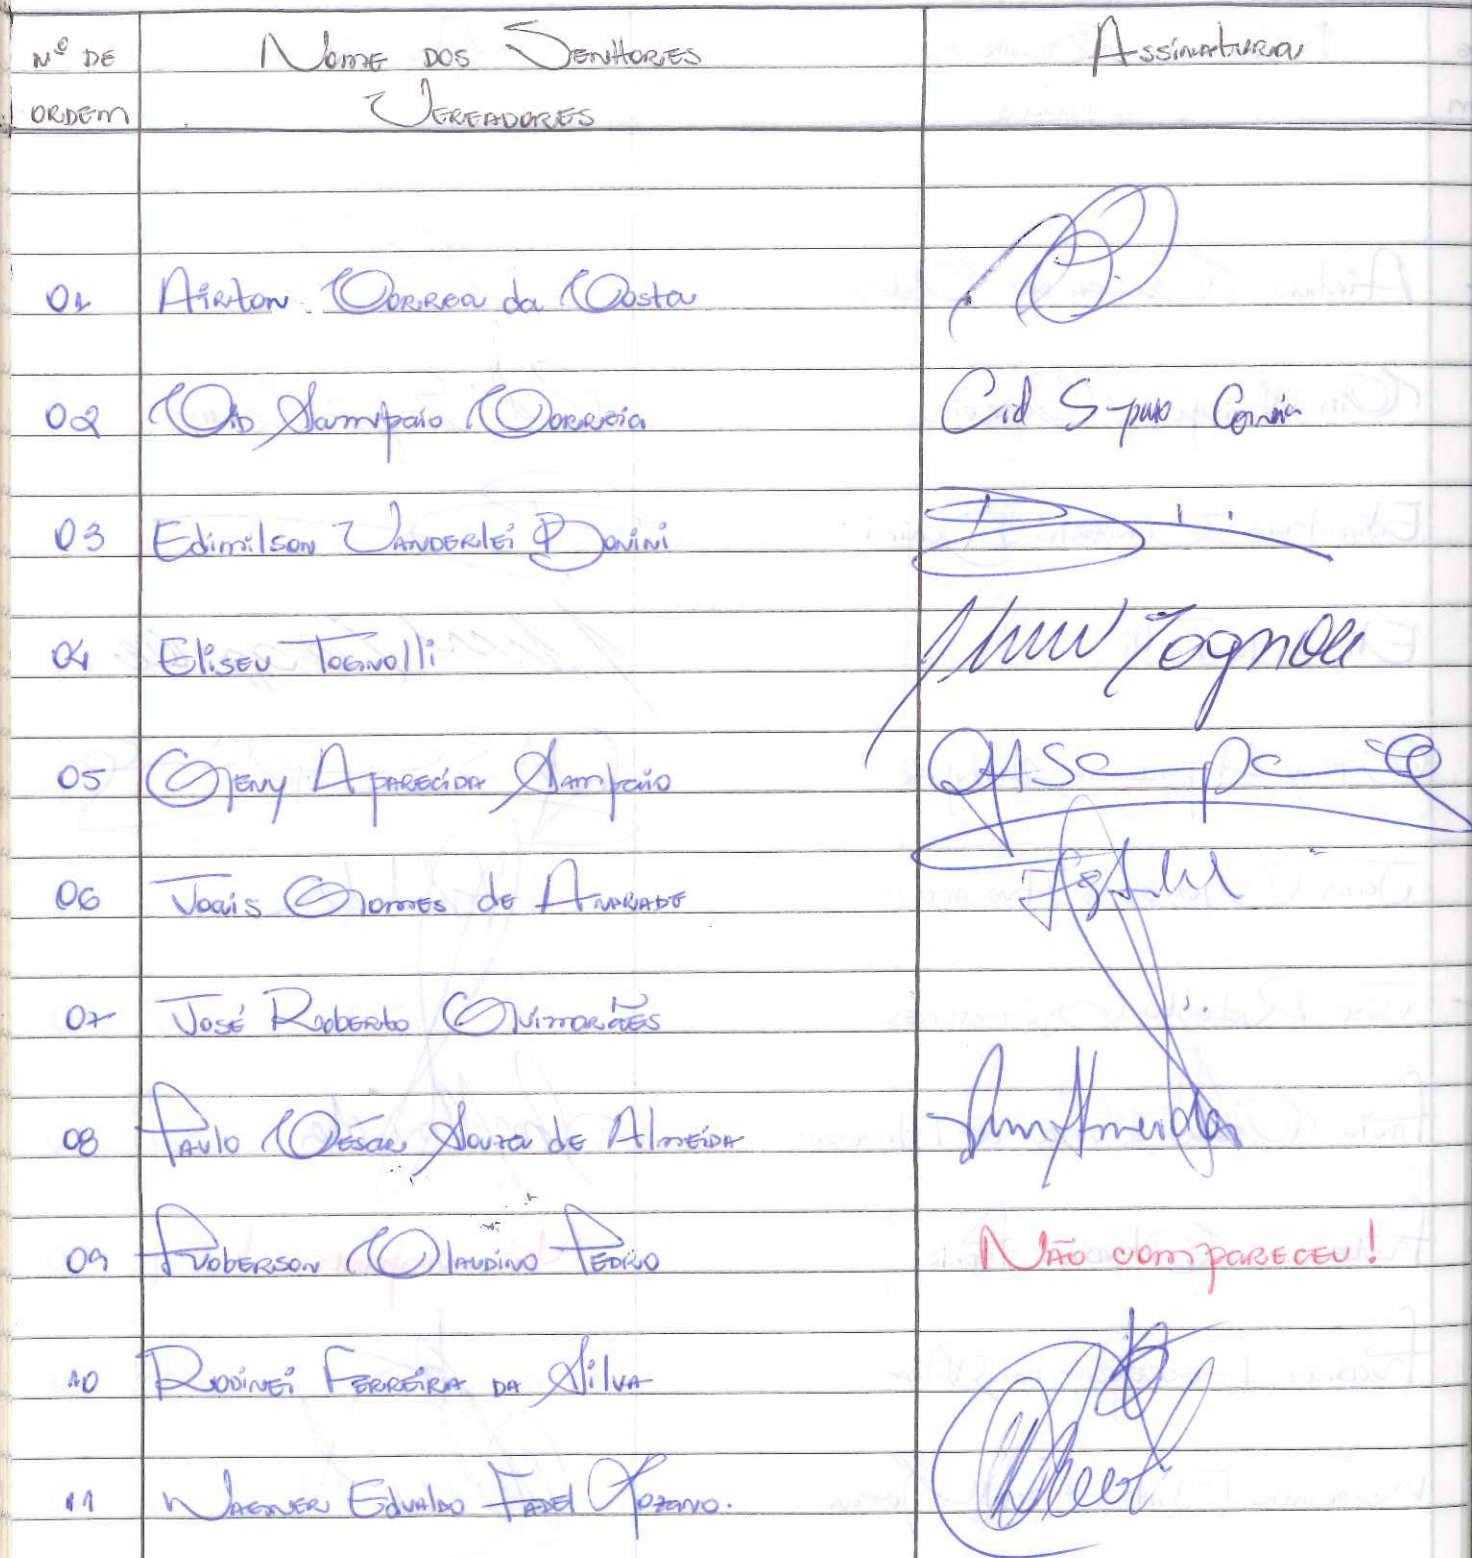 Nº DE Nome dos Senhores Assinatura
ORDEM Vereadores
01 Airton Correa da Costa
02 Cid Sampaio Correia Cid Sampaio Correia
03 Edimilson Vanderlei Bonini
04 Eliseu Tognolli Tognolli
05 Geny Aparecida Sampaio GASampaio
06 Joais Gomes de Andrade
07 José Roberto Guimarães
08 Paulo César Souza de Almeida Almeida
09 Roberson Claudino Pedro Não compareceu!
10 Rodinei Ferreira da Silva
11 Wagner Edvaldo Fadel Lozano.